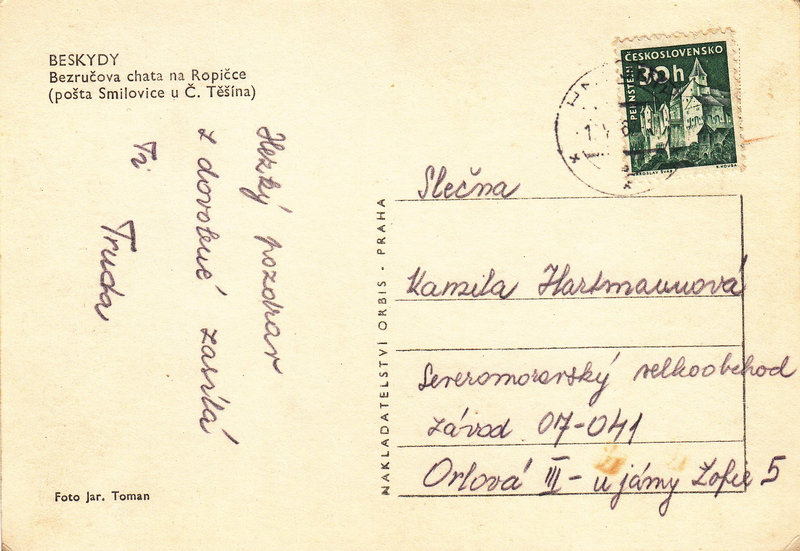 BESKYDY
Bezručova chata na Ropičce
(pošta Smilovice u Č. Těšína)
Hezký pozdrav
z dovolené zasílá
Ti
Truda
Foto Jar. Toman
NAKLADATELSTVÍ ORBIS - PRAHA
ČESKOSLOVENSKO
30h
PERNŠTEJN
JAROSLAV ŠVÁB
Slečna
Kamila Hartmannová
Severomoravský velkoobchod
závod 07-041
Orlová III - u jámy Žofie 5